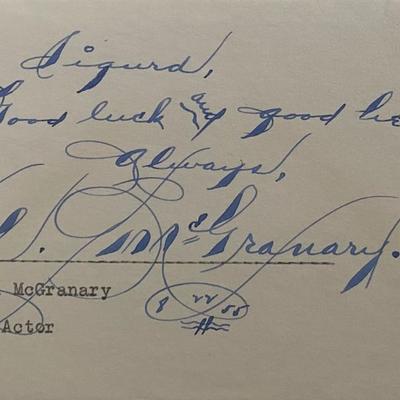 Sigurd,
Good luck and good he
Always,
McGranary.
McGranary
8 22 55
Actor